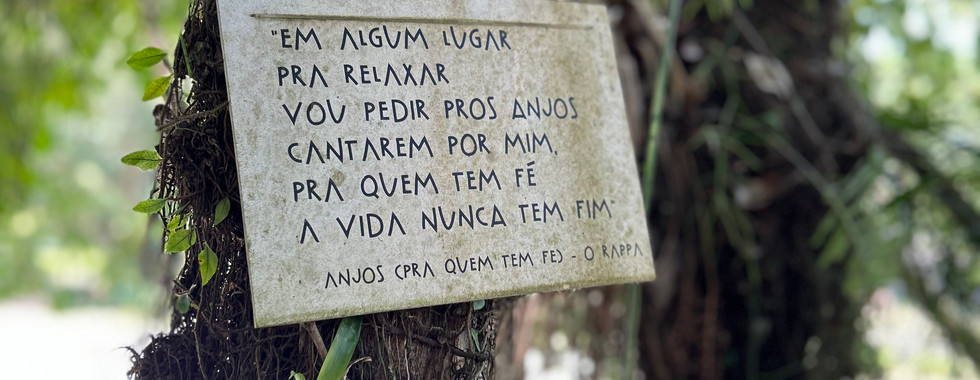 "EM ALGUM LUGAR
PRA RELAXAR
VOU PEDIR PROS ANJOS
CANTAREM POR MIM,
PRA QUEM TEM FÉ
A VIDA NUNCA TEM FIM"
ANJOS (PRA QUEM TEM FE) - O RAPPA